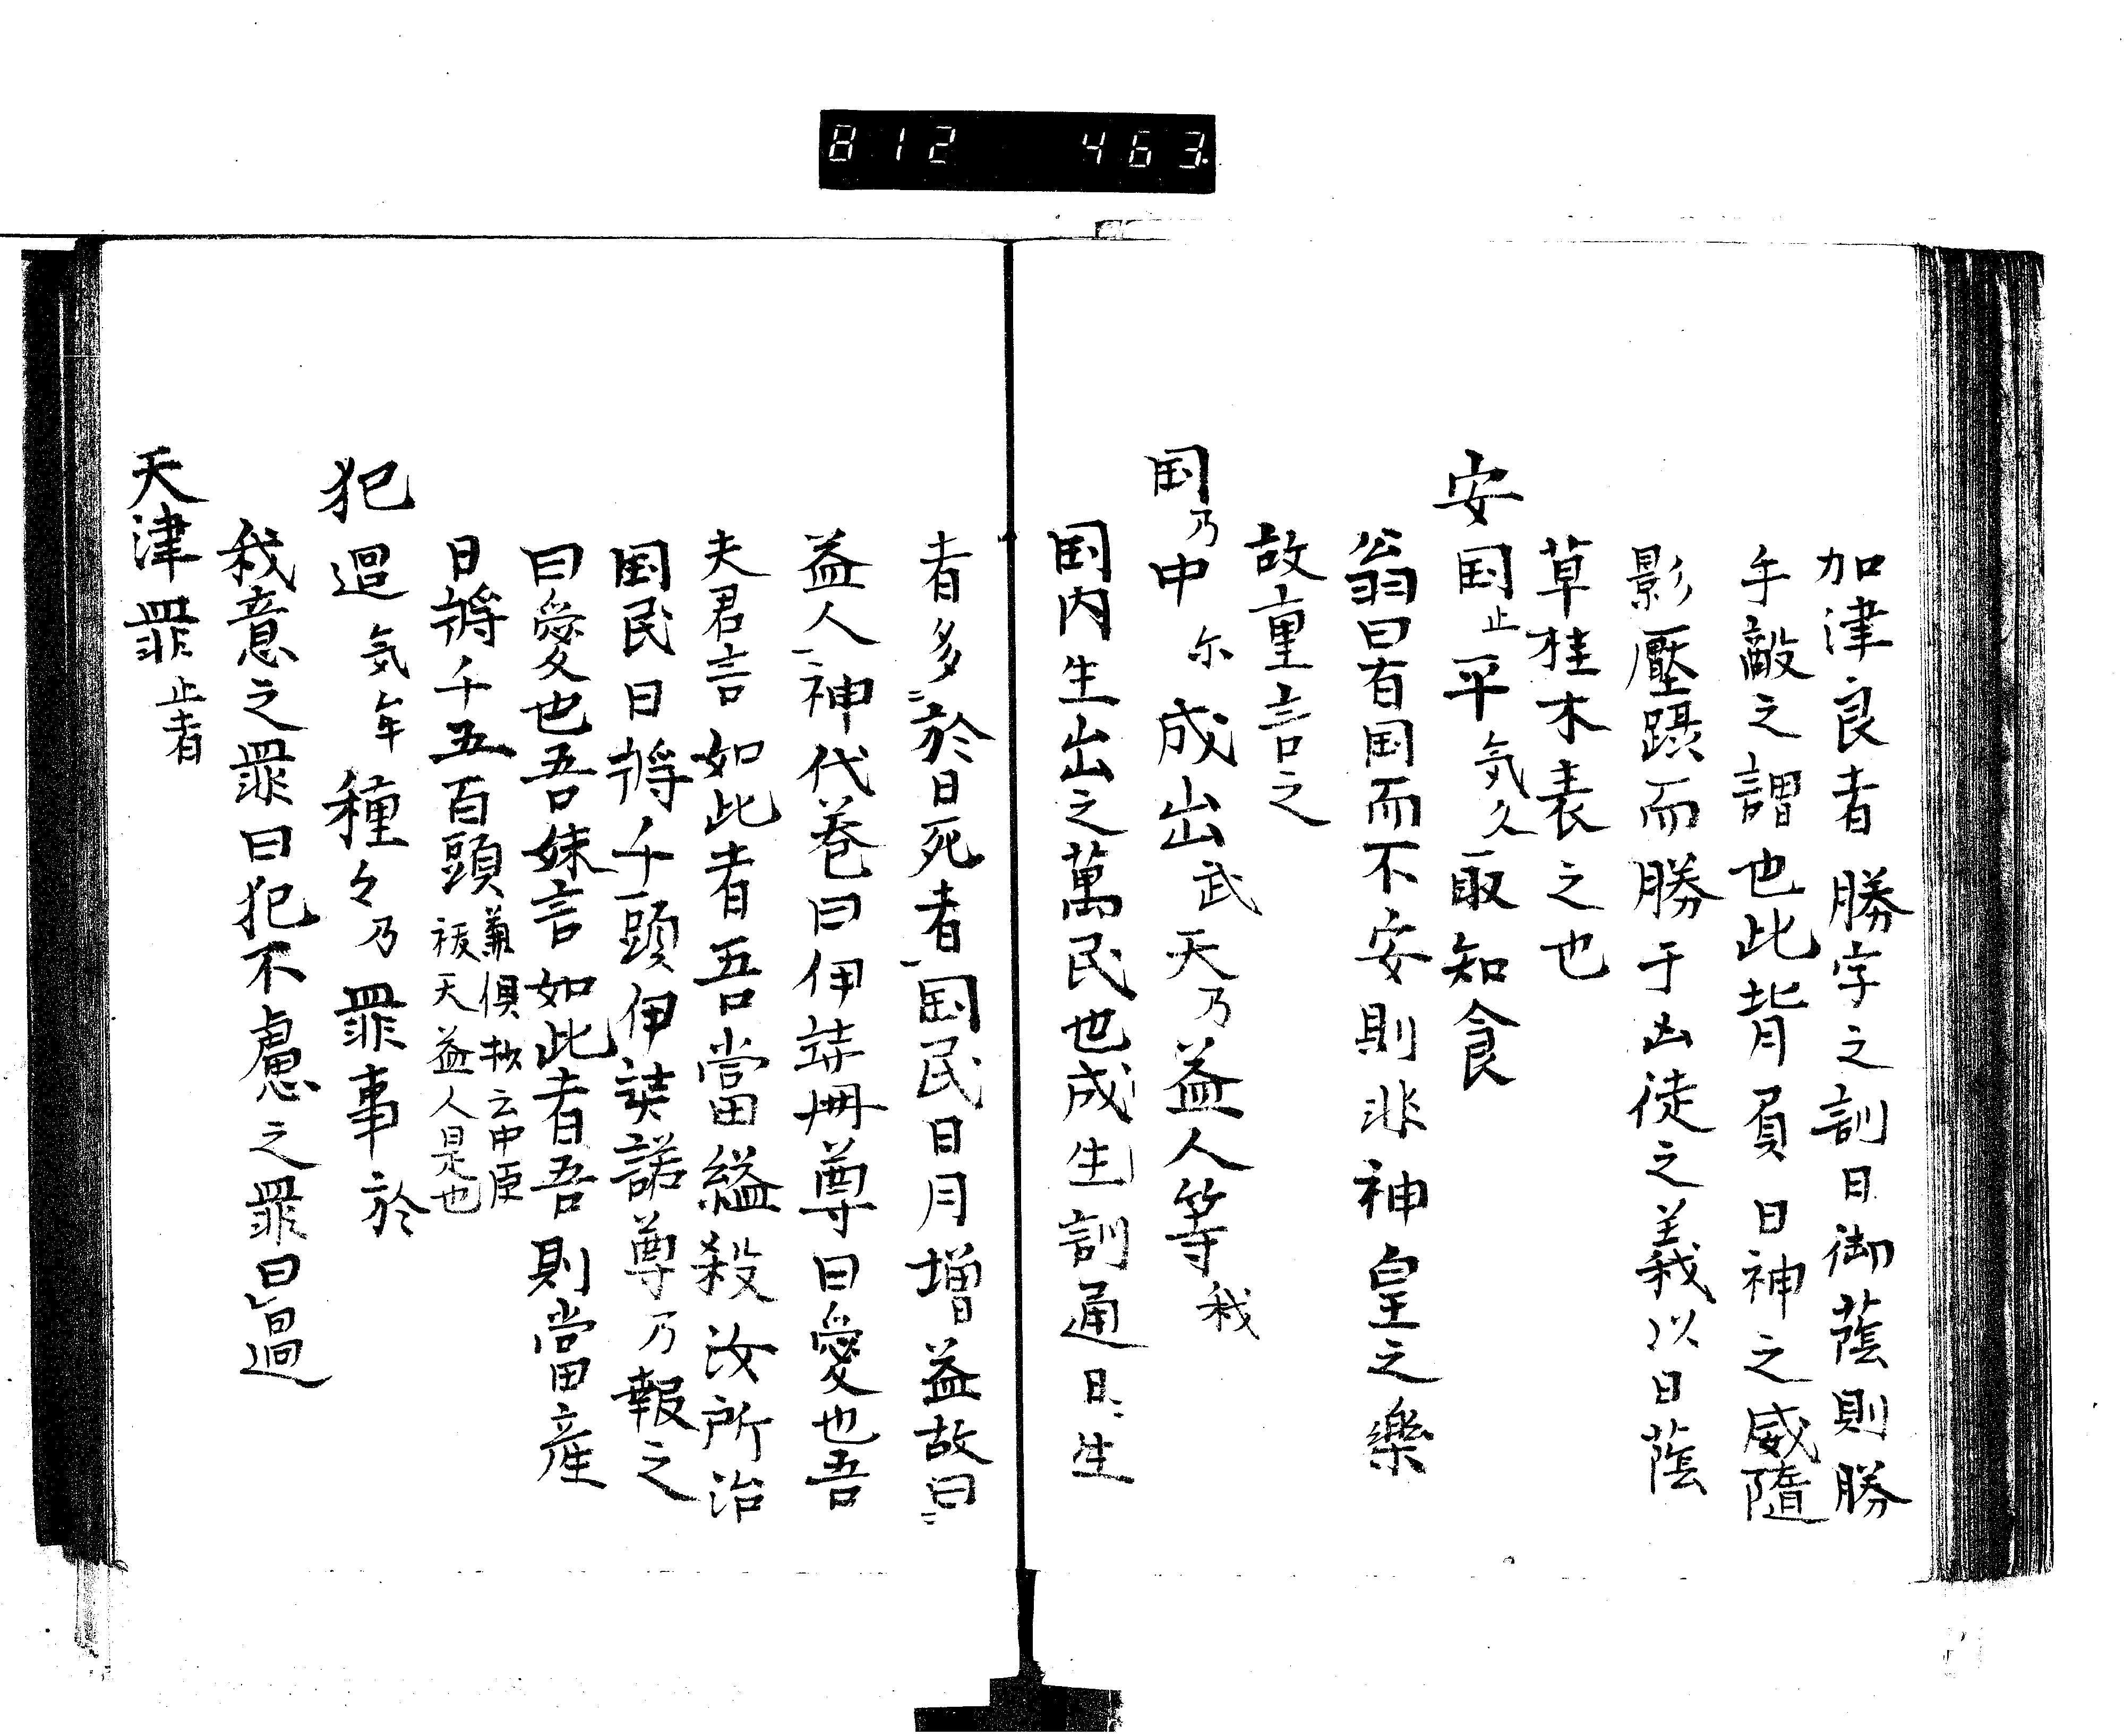 812 463
加津良者勝字之訓日御蔭則勝
手敵之謂也此背負日神之威隨
影壓躡而勝于凶徒之義以日蔭
草桂木表之也
安国止平気久取知食
翁曰有国而不安則非神皇之樂
故重言之
国乃中尓成出武天乃益人等我
国内生出之萬民也成生訓通日生
者多於日死者国民日月增益故曰
益人神代巻曰伊弉冊尊曰愛也吾
夫君言如此者吾當縊殺汝所治
国民日将千頭伊弉諾尊乃報之
曰愛也吾妹言如此者吾則當産
日将千五百頭兼倶抄云中臣
祓天益人是也
犯過気牟種々乃罪事於
我意之罪曰犯不慮之罪曰過
天津罪止者